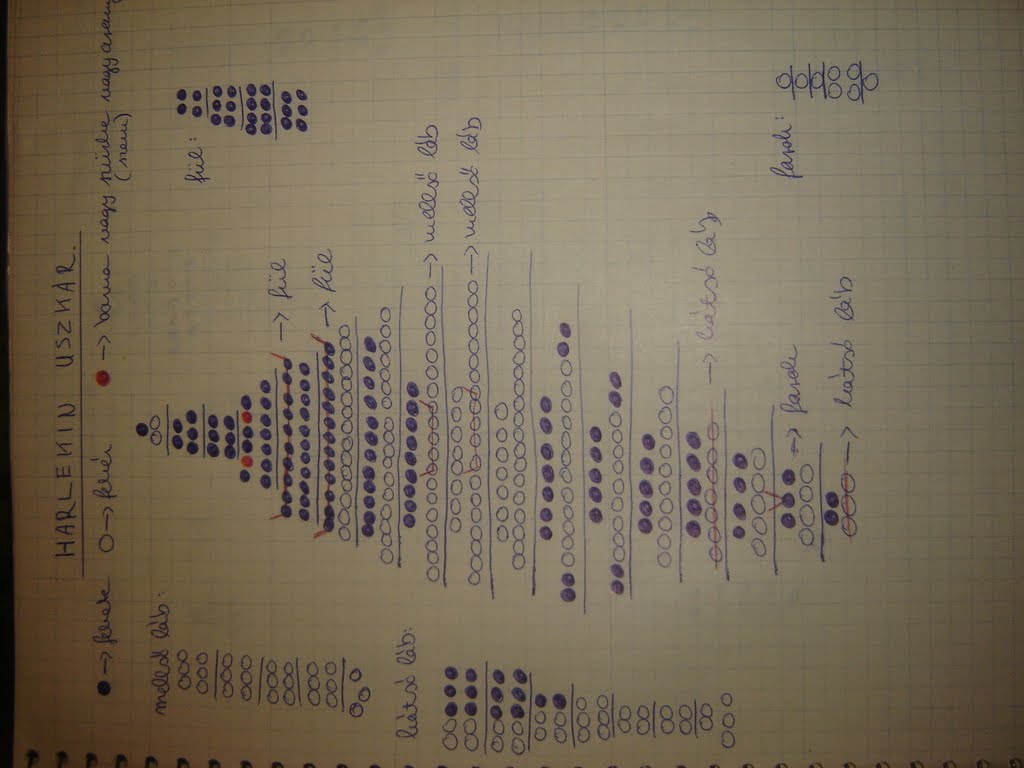 HARLEKIN USZKÁR.
→ fekete → fehér → barna nagy szürke nagy arany
(szem)
mellső láb:
fül:
→ fül
→ fül
→ mellső láb
→ mellső láb
hátsó láb:
→ hátsó láb
farok:
→ farok
→ hátsó láb